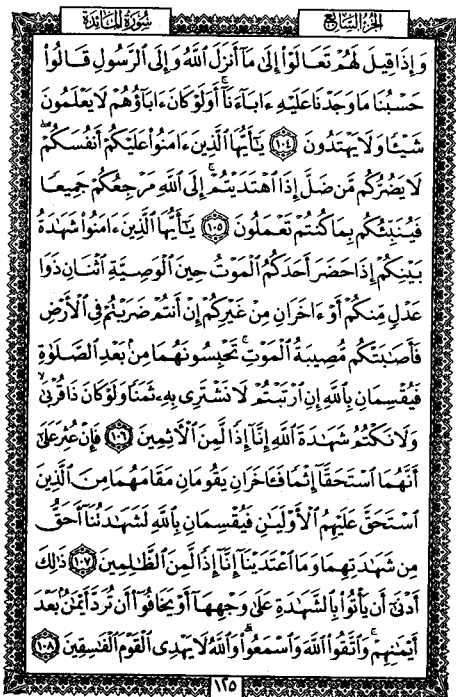 الجزء السابع
سورة المائدة
وَإِذَا قِيلَ لَهُمْ تَعَالَوْا۟ إِلَىٰ مَآ أَنزَلَ ٱللَّهُ وَإِلَى ٱلرَّسُولِ قَالُوا۟
حَسْبُنَا مَا وَجَدْنَا عَلَيْهِ ءَابَآءَنَآ ۚ أَوَلَوْ كَانَ ءَابَآؤُهُمْ لَا يَعْلَمُونَ
شَيْـًٔا وَلَا يَهْتَدُونَ ١٠٤ يَـٰٓأَيُّهَا ٱلَّذِينَ ءَامَنُوا۟ عَلَيْكُمْ أَنفُسَكُمْ ۖ
لَا يَضُرُّكُم مَّن ضَلَّ إِذَا ٱهْتَدَيْتُمْ ۚ إِلَى ٱللَّهِ مَرْجِعُكُمْ جَمِيعًا
فَيُنَبِّئُكُم بِمَا كُنتُمْ تَعْمَلُونَ ١٠٥ يَـٰٓأَيُّهَا ٱلَّذِينَ ءَامَنُوا۟ شَهَـٰدَةُ
بَيْنِكُمْ إِذَا حَضَرَ أَحَدَكُمُ ٱلْمَوْتُ حِينَ ٱلْوَصِيَّةِ ٱثْنَانِ ذَوَا
عَدْلٍ مِّنكُمْ أَوْ ءَاخَرَانِ مِنْ غَيْرِكُمْ إِنْ أَنتُمْ ضَرَبْتُمْ فِى ٱلْأَرْضِ
فَأَصَـٰبَتْكُم مُّصِيبَةُ ٱلْمَوْتِ ۚ تَحْبِسُونَهُمَا مِنۢ بَعْدِ ٱلصَّلَوٰةِ
فَيُقْسِمَانِ بِٱللَّهِ إِنِ ٱرْتَبْتُمْ لَا نَشْتَرِى بِهِۦ ثَمَنًا وَلَوْ كَانَ ذَا قُرْبَىٰ ۙ
وَلَا نَكْتُمُ شَهَـٰدَةَ ٱللَّهِ إِنَّآ إِذًا لَّمِنَ ٱلْـَٔاثِمِينَ ١٠٦ فَإِنْ عُثِرَ عَلَىٰٓ
أَنَّهُمَا ٱسْتَحَقَّآ إِثْمًا فَـَٔاخَرَانِ يَقُومَانِ مَقَامَهُمَا مِنَ ٱلَّذِينَ
ٱسْتَحَقَّ عَلَيْهِمُ ٱلْأَوْلَيَـٰنِ فَيُقْسِمَانِ بِٱللَّهِ لَشَهَـٰدَتُنَآ أَحَقُّ
مِن شَهَـٰدَتِهِمَا وَمَا ٱعْتَدَيْنَآ إِنَّآ إِذًا لَّمِنَ ٱلظَّـٰلِمِينَ ١٠٧ ذَٰلِكَ
أَدْنَىٰٓ أَن يَأْتُوا۟ بِٱلشَّهَـٰدَةِ عَلَىٰ وَجْهِهَآ أَوْ يَخَافُوٓا۟ أَن تُرَدَّ أَيْمَـٰنٌۢ بَعْدَ
أَيْمَـٰنِهِمْ ۗ وَٱتَّقُوا۟ ٱللَّهَ وَٱسْمَعُوا۟ ۗ وَٱللَّهُ لَا يَهْدِى ٱلْقَوْمَ ٱلْفَـٰسِقِينَ ١٠٨
١٢٥